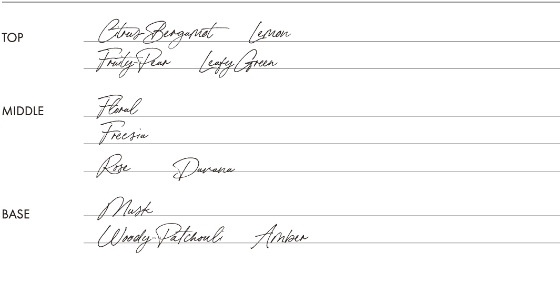 TOP Citrus-Bergamot Lemon
Fruity-Pear Leafy Green
MIDDLE Floral
Freesia
Rose Davana
BASE Musk
Woody-Patchouli Amber